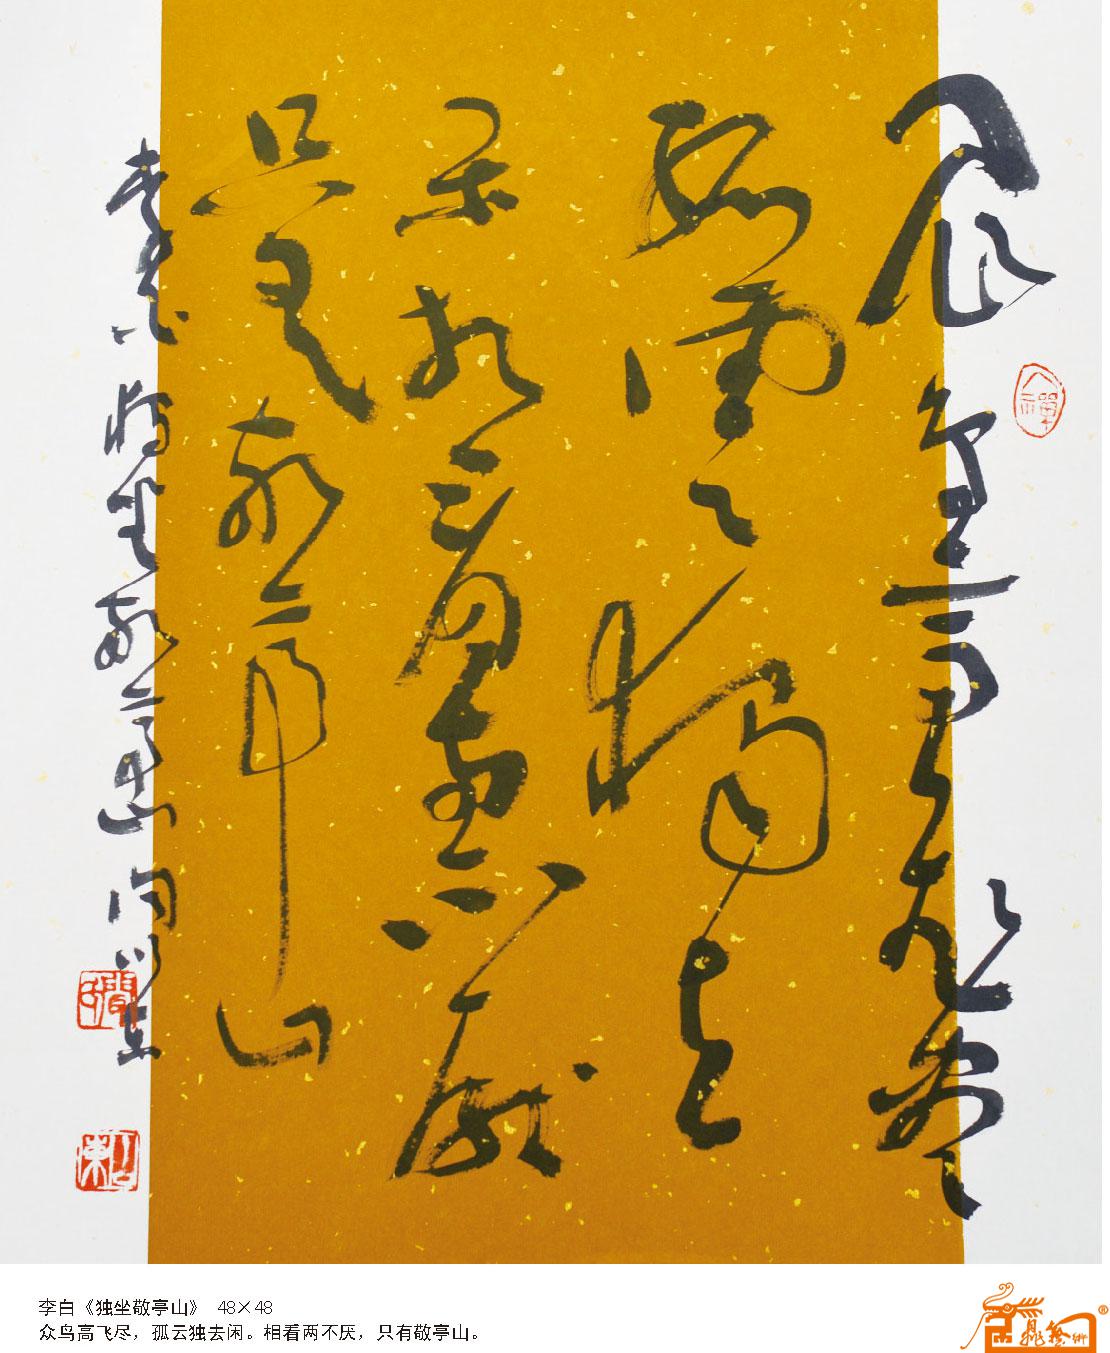 眾鳥高飛盡
孤雲獨去
閑相看兩不厭
只有敬亭山
李白獨坐敬亭山
李白《独坐敬亭山》 48×48
众鸟高飞尽，孤云独去闲。相看两不厌，只有敬亭山。